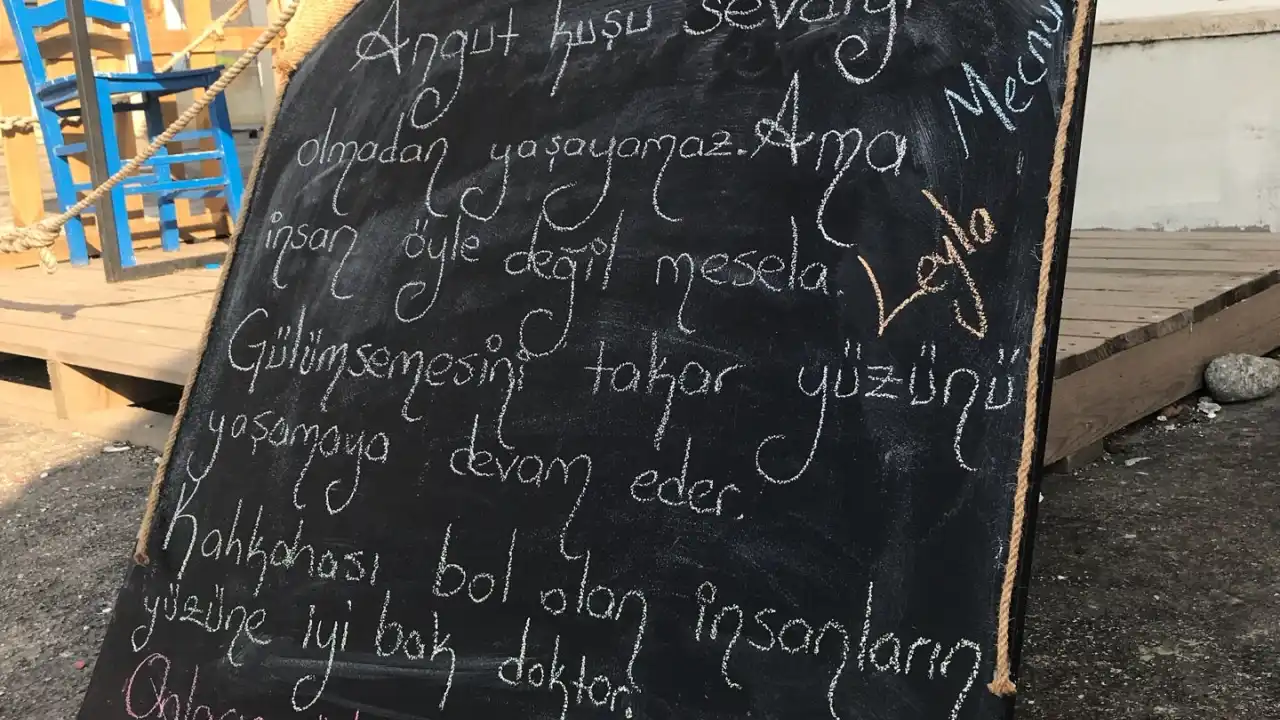 Angut kuşu sevdiği
olmadan yaşayamaz. Ama
insan öyle değil mesela
Gülümsemesini takar yüzünü
yaşamaya devam eder.
Kahkahası bol olan insanların
yüzüne iyi bak doktor.
Mecnun
Leyla